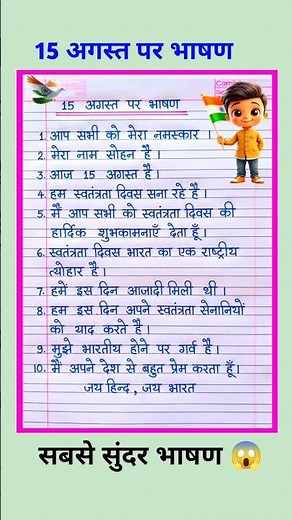 15 अगस्त पर भाषण
15 अगस्त पर भाषण
1. आप सभी को मेरा नमस्कार ।
2. मेरा नाम सोहन है ।
3. आज 15 अगस्त है ।
4. हम स्वतंत्रता दिवस मना रहे है ।
5. मैं आप सभी को स्वतंत्रता दिवस की
हार्दिक शुभकामनाएँ देता हूँ ।
6. स्वतंत्रता दिवस भारत का एक राष्ट्रीय
त्योहार है ।
7. हमें इस दिन आजादी मिली थी ।
8. हम इस दिन अपने स्वतंत्रता सेनानियों
को याद करते है ।
9. मुझे भारतीय होने पर गर्व है ।
10. मैं अपने देश से बहुत प्रेम करता हूँ ।
जय हिन्द , जय भारत
सबसे सुंदर भाषण